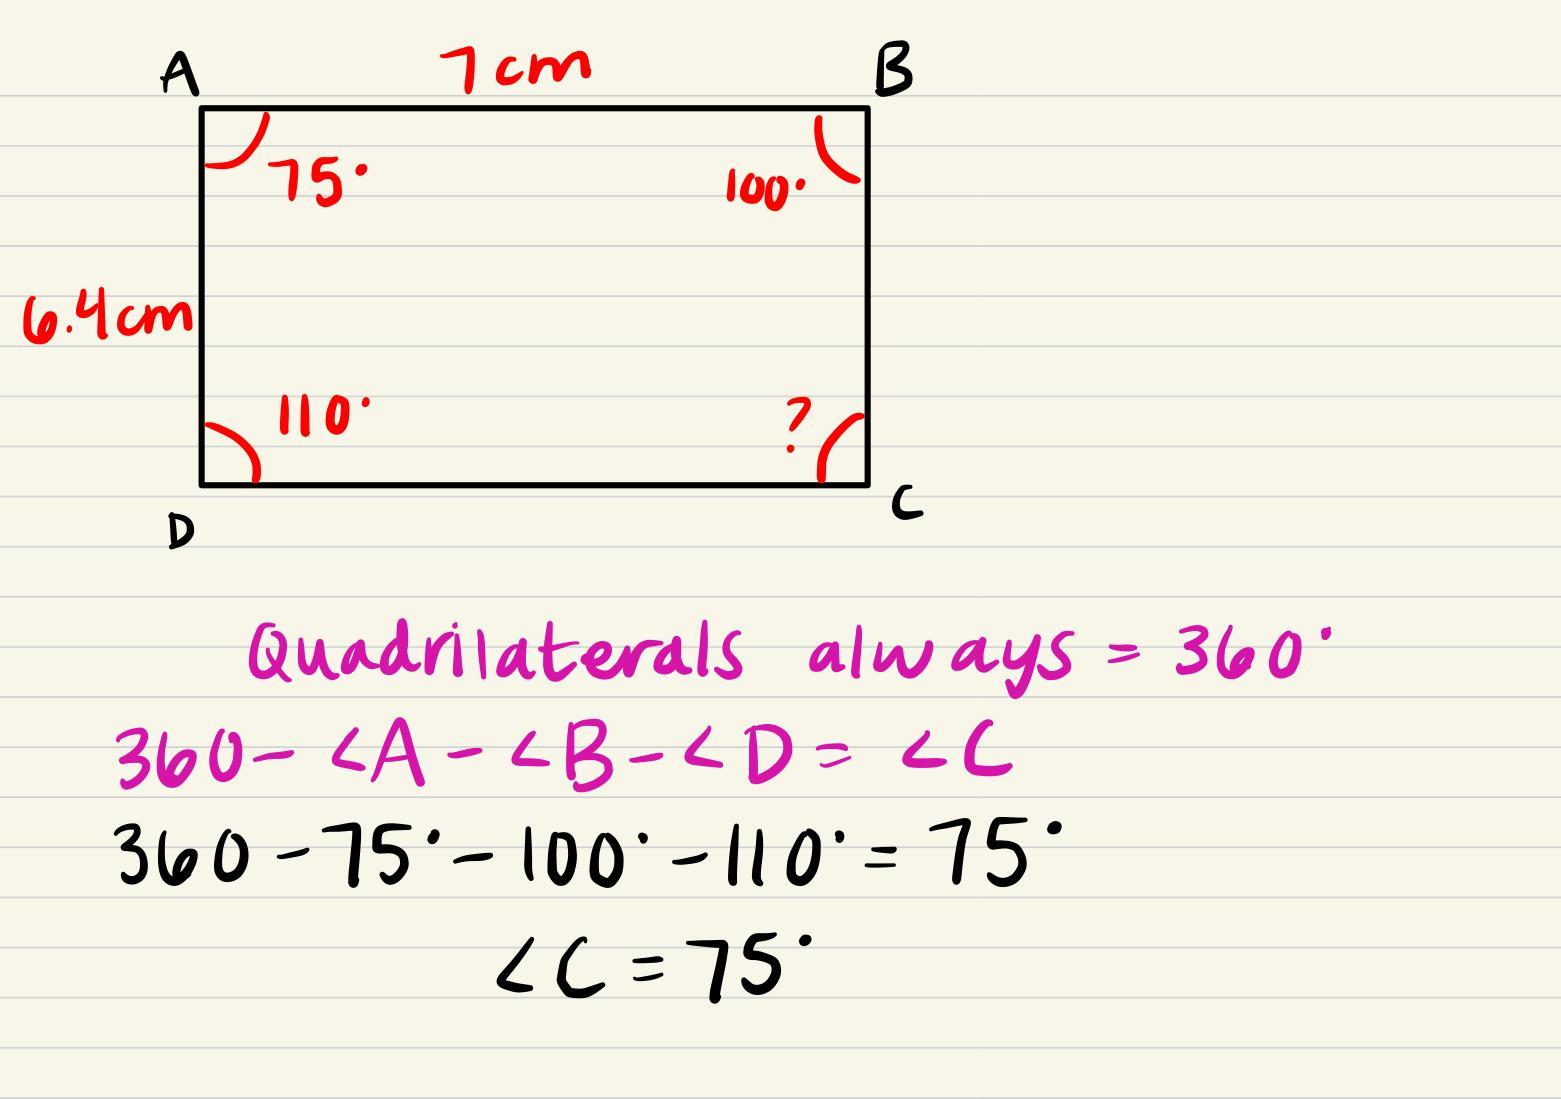 A 7cm B
75°
100°
6.4cm
110°
?
D
C
Quadrilaterals always = 360°
360 - <A - <B - <D = <C
360 - 75° - 100° - 110° = 75°
<C = 75°